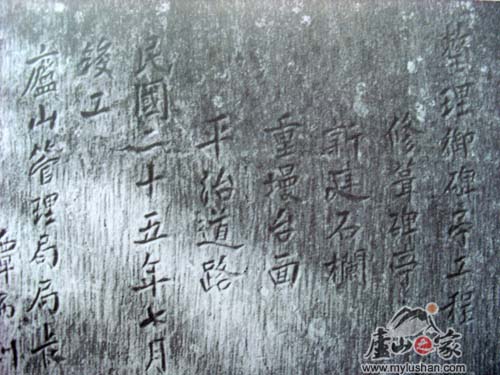 整理御碑亭工程
修葺碑亭
新建石欄
重墁台面
平治道路
民國二十五年七月
竣工
廬山管理局局長
庐山之家
www.mylushan.com